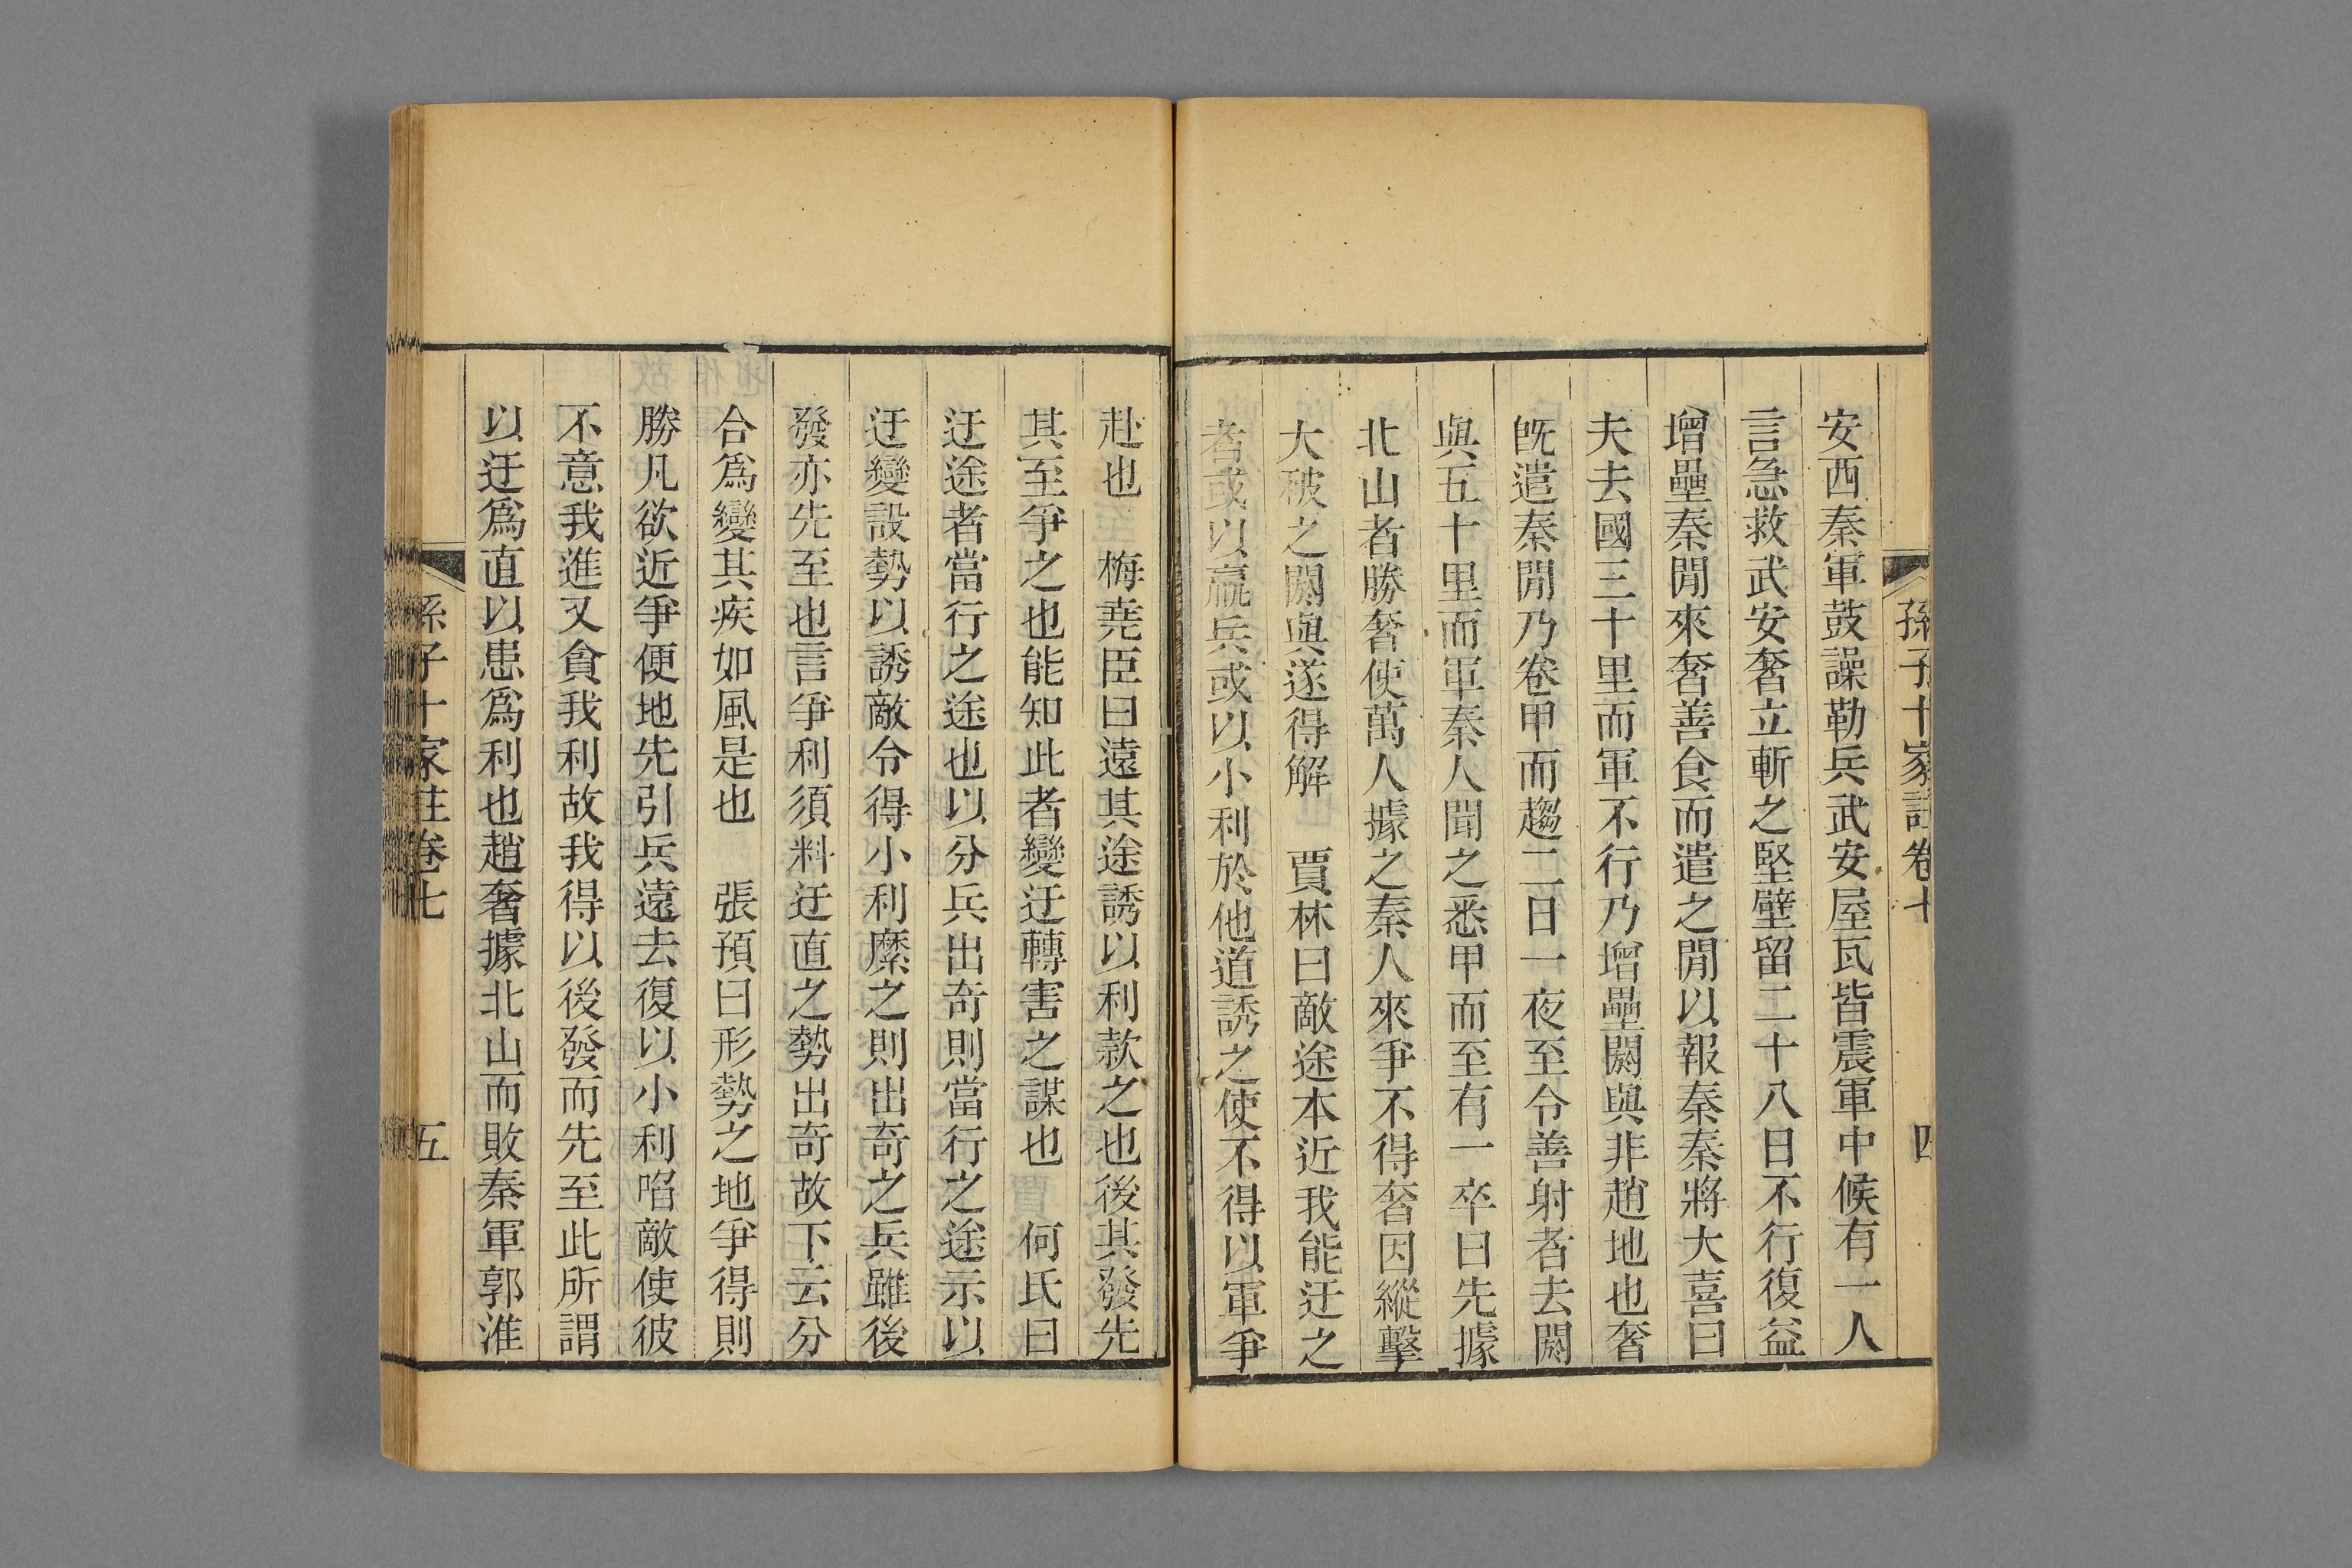 孫子十家註卷七
四
安西秦軍鼓譟勒兵武安屋瓦皆震軍中候有一人
言急救武安奢立斬之堅壁留二十八日不行復益
增壘秦閒來奢善食而遣之閒以報秦秦將大喜曰
夫去國三十里而軍不行乃增壘閼與非趙地也奢
旣遣秦閒乃卷甲而趨二日一夜至令善射者去閼
與五十里而軍秦人聞之悉甲而至有一卒曰先據
北山者勝奢使萬人據之秦人來爭不得奢因縱擊
大破之閼與遂得解　賈林曰敵途本近我能迂之
者或以羸兵或以小利於他道誘之使不得以軍爭
赴也　梅堯臣曰遠其途誘以利款之也後其發先
其至爭之也能知此者變迂轉害之謀也　何氏曰
迂途者當行之途也以分兵出奇則當行之途示以
迂變設勢以誘敵令得小利縻之則出奇之兵雖後
發亦先至也言爭利須料迂直之勢出奇故下云分
合爲變其疾如風是也　張預曰形勢之地爭得則
勝凡欲近爭便地先引兵遠去復以小利啗敵使彼
不意我進又貪我利故我得以後發而先至此所謂
以迂爲直以患爲利也趙奢據北山而敗秦軍郭淮
孫子十家註卷七
五